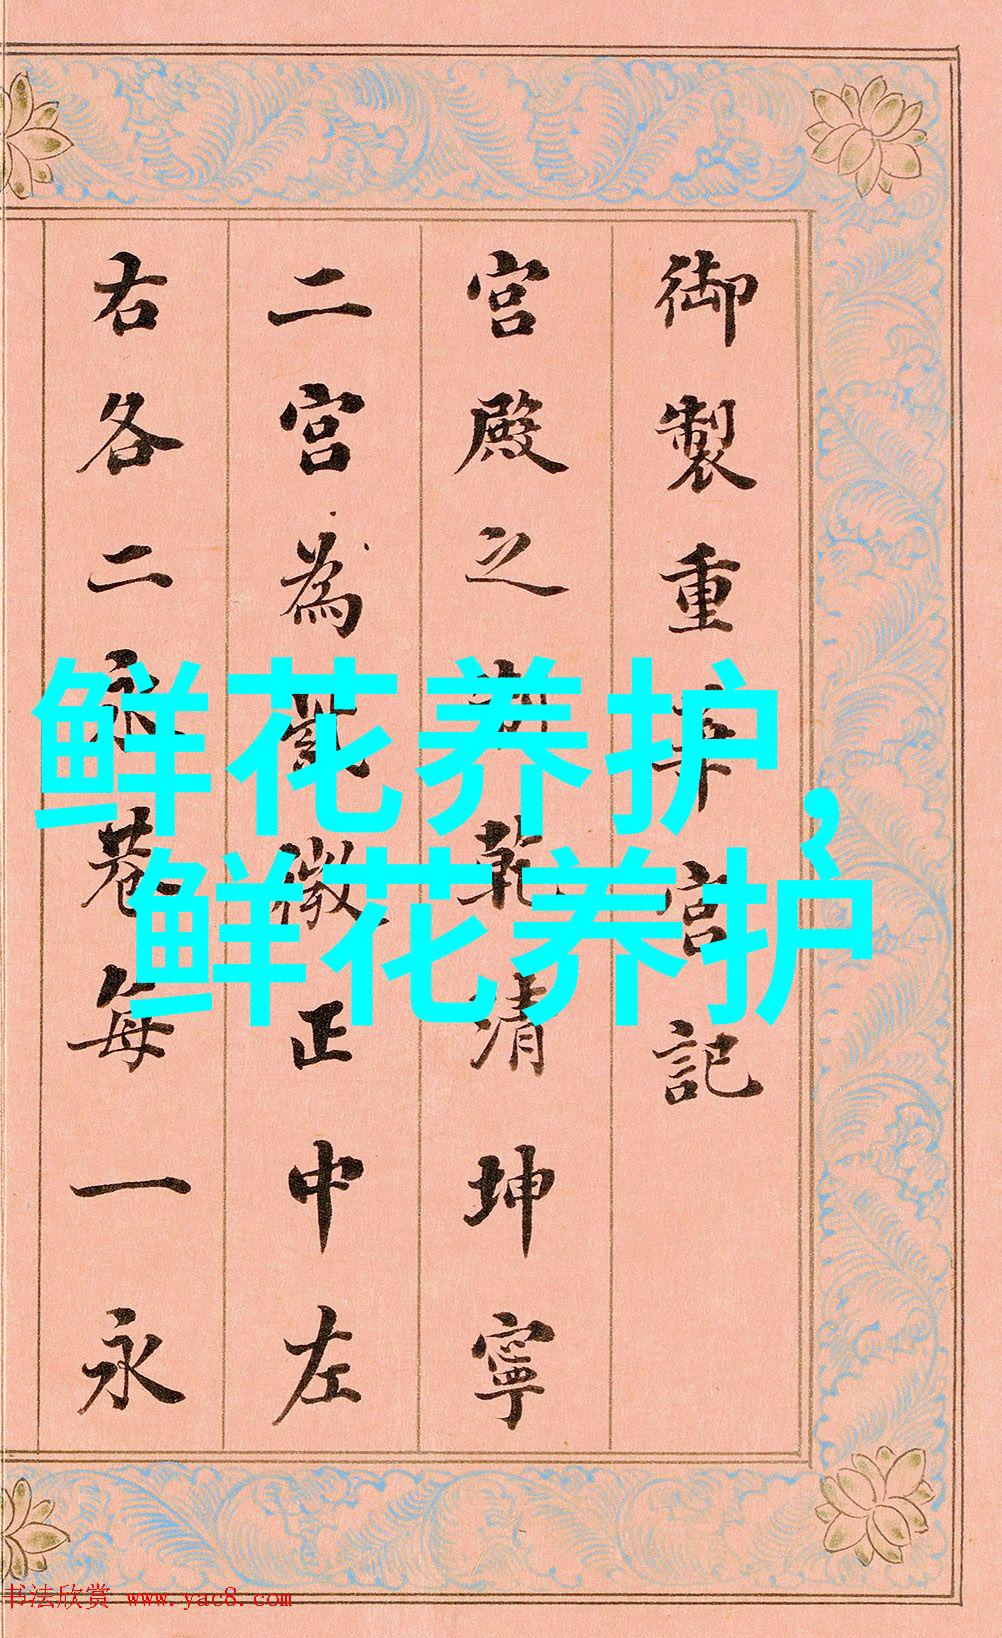 御製重華宮記
宮殿之制乾清坤寧
二宮為紫微正中左
右各二永巷每一永
鲜花养护,
鲜花养护
书法欣赏 www.yac8.com